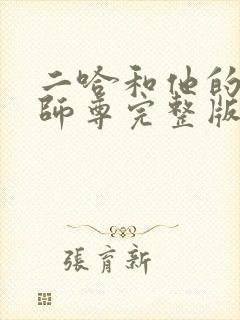 二哈和他的
師尊完整版
張育新